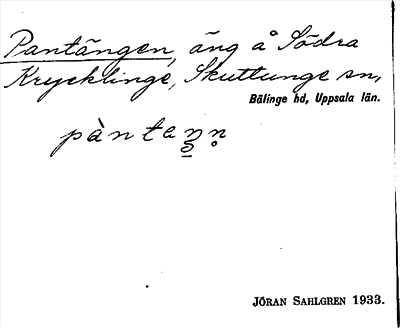 Pantängen, äng å Södra
Krycklinge, Skuttunge sn,
Bälinge hd, Uppsala län.
pàntaŋ̲n̥
JÖRAN SAHLGREN 1933.